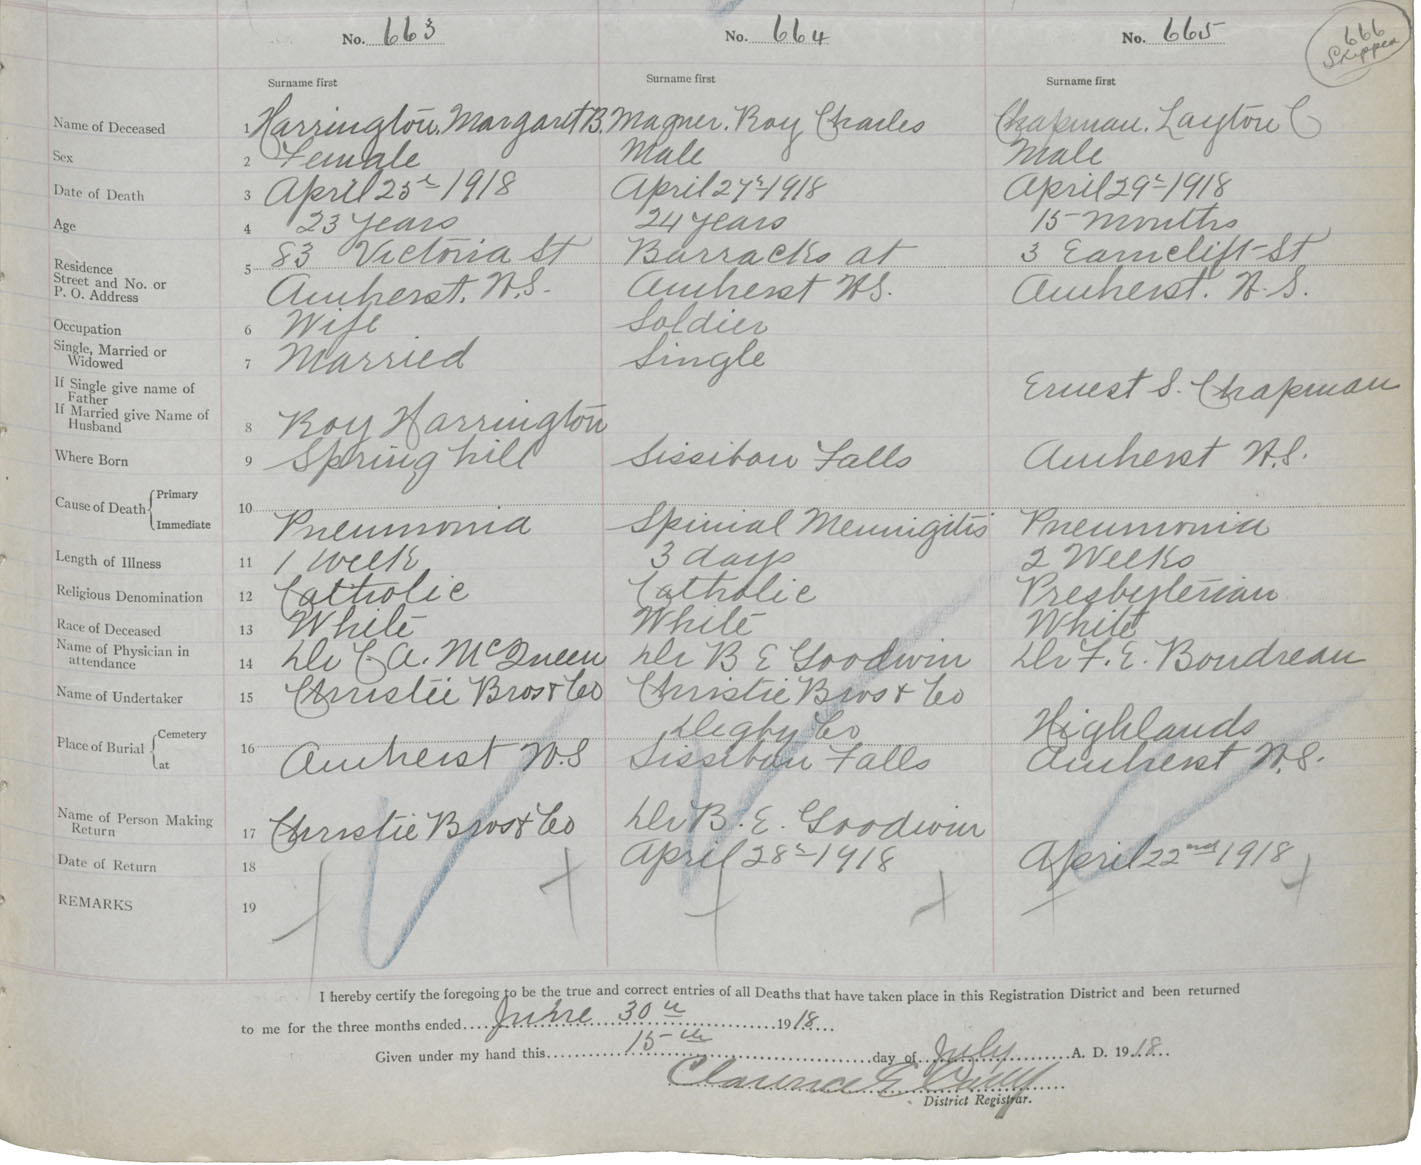 No. 663 No. 664 No. 665 666 Skipped
Surname first Surname first Surname first
Name of Deceased 1 Harrington, Margaret B. Magner, Roy Charles Chapman, Layton C
Sex 2 Female Male Male
Date of Death 3 April 25th 1918 April 27th 1918 April 29th 1918
Age 4 23 years 24 years 15 months
83 Victoria St Barracks at 3 St
Residence
Street and No. or
P. O. Address 5 Amherst, N.S. Amherst N.S. Amherst. N.S.
Occupation 6 Wife Soldier
Single, Married or
Widowed 7 Married Single
If Single give name of
Father Ernest S. Chapman
If Married give Name of
Husband 8 Roy Harrington
Where Born 9 Springhill Sissibou Falls Amherst N.S.
Cause of Death Primary 10
Immediate Pneumonia Spinial Mennigitis Pneumonia
Length of Illness 11 1 week 3 days 2 Weeks
Religious Denomination 12 Catholic Catholic Presbyterian
Race of Deceased 13 White White White
Name of Physician in
attendance 14 Dr C A. McQueen Dr B E Goodwin Dr F. E. Boudreau
Name of Undertaker 15 Christie Bros & Co Christie Bros & Co
Place of Burial Cemetery 16 Digby Co Highlands
at Amherst N.S Sissibou Falls Amherst N.S.
Name of Person Making
Return 17 Christie Bros & Co Dr B. E. Goodwin
Date of Return 18 April 28th 1918 April 22nd 1918
REMARKS 19
I hereby certify the foregoing to be the true and correct entries of all Deaths that have taken place in this Registration District and been returned
to me for the three months ended June 30th 1918
Given under my hand this 15th day of July A. D. 1918
Clarence E.
District Registrar.